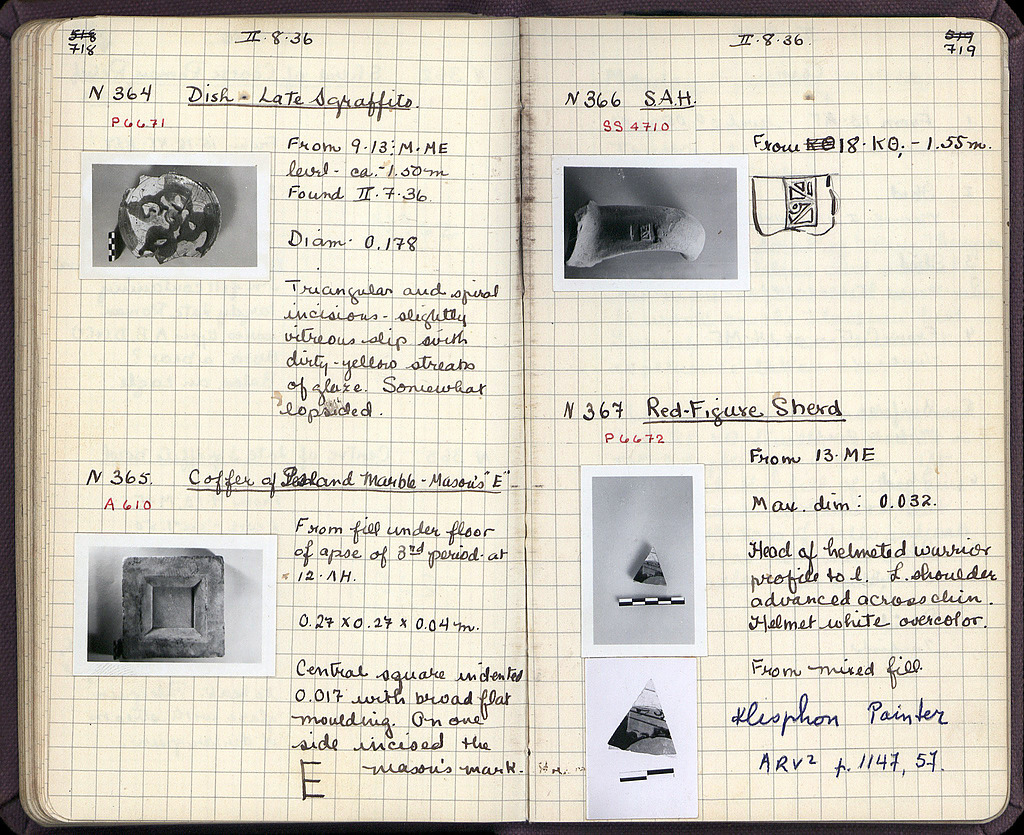 518
718
II·8·36
N 364 Dish - Late Sgraffito.
P 6671
From 9·13; M·ME
level - ca. -1.50 m
Found II·7·36.
Diam: 0.178
Triangular and spiral
incisions - slightly
vitreous slip with
dirty-yellow streaks
of glaze. Somewhat
lopsided.
N 365. Coffer of Island Marble - Mason's "E"
A 610
From fill under floor
of apse of 3rd period - at
12·ΛH.
0.27 x 0.27 x 0.04 m.
Central square indented
0.017 with broad flat
moulding. On one
side incised the
E mason's mark.
II·8·36.
519
719
N 366 S.A.H.
SS 4710
From 18·KΘ, - 1.55 m.
N 367 Red-Figure Sherd
P 6672
From 13·ME
Max. dim: 0.032.
Head of helmeted warrior
profile to l. L. shoulder
advanced across chin.
Helmet white overcolor.
From mixed fill
Klisphon Painter
ARV² p. 1147, 57.